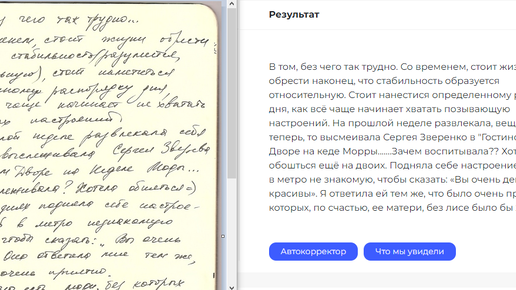 чего так трудно...
стоит жизни обрести
стабильность (разумеется,
), стоит нанестись
распорядку дня,
чаще начинает не хватать
настроений
неделе развлекала себя
Сергея Зверева
Дворе на Неделе Моды...
? Хотела обняться =)
подняла себе настрое-
в метро незнакомую
чтобы сказать: „Вы очень
Она ответила мне тем же,
очень приятно.
люди, без которых
Результат
В том, без чего так трудно. Со временем, стоит жиз
обрести наконец, что стабильность образуется
относительную. Стоит нанестися определенному р
дня, как всё чаще начинает хватать позывающую
настроений. На прошлой неделе развлекала, вещ
теперь, то высмеивала Сергея Зверенко в "Гостино
Дворе на кеде Морры......Зачем воспитывала?? Хот
обошться ещё на двоих. Подняла себе настроение
в метро не знакомую, чтобы сказать: «Вы очень де
красивы». Я ответила ей тем же, что было очень пр
которых, по счастью, ее матери, без лисе было бы
Автокорректор
Что мы увидели